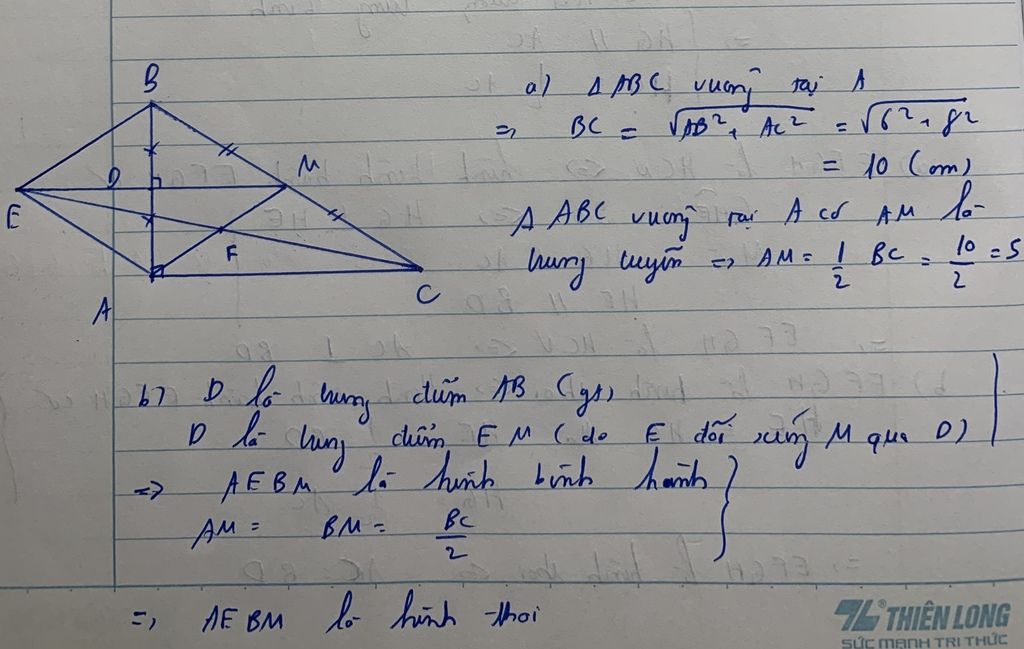 a) Δ ABC vuông tại A
=> BC = √AB² + AC² = √6² + 8²
= 10 (cm)
Δ ABC vuông tại A có AM là
trung tuyến => AM = 1/2 BC = 10/2 = 5
B
D
M
E
F
A
C
b) D là trung điểm AB (gt)
D là trung điểm EM (do E đối xứng M qua D)
=> AEBM là hình bình hành
AM = BM = BC/2
=> AEBM là hình thoi
TL® THIÊN LONG
SỨC MẠNH TRI THỨC